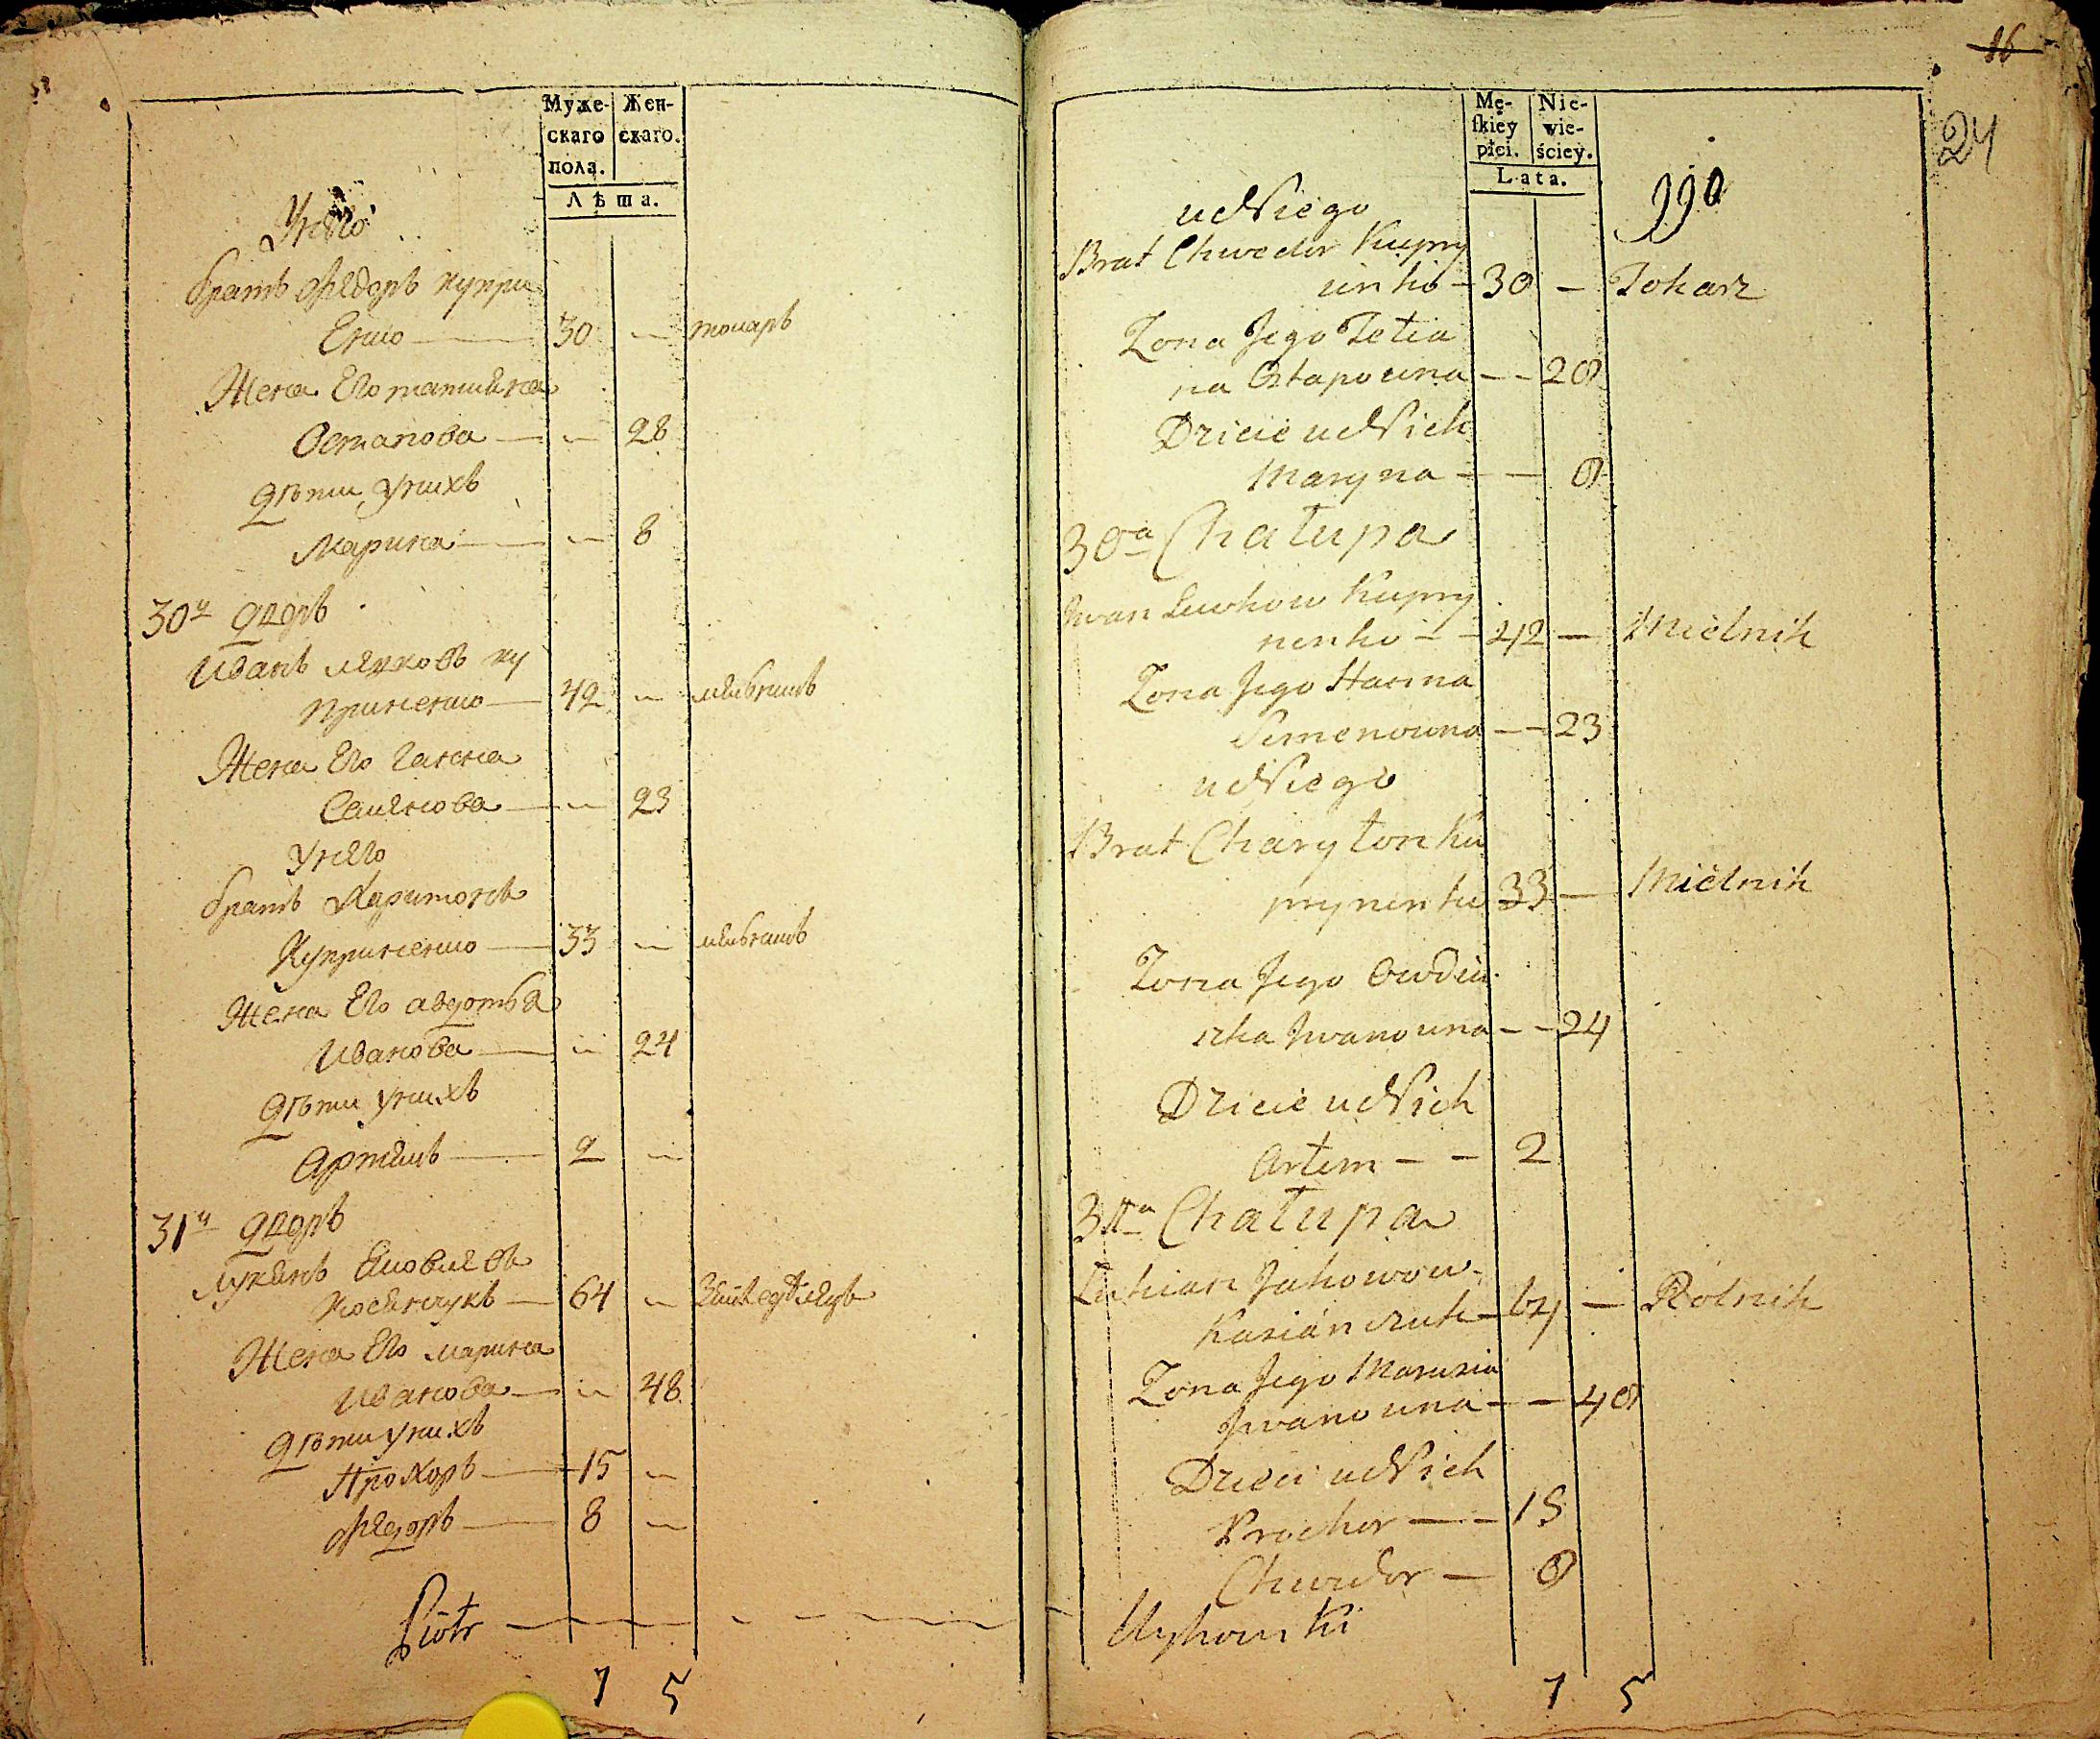 Муже- Жен-
скаго скаго.
пола.
Лѣта.
Унѣго
братъ Федоръ купри
Енко — 30 — токаръ
Жена Его татияна
Остапова — — 28
дѣти унихъ
Марина — — 8
30й дворъ
Иванъ лѣвковъ ку
приненко — 42 — мѣльникъ
Жена Его ганна
Семѣнова — — 23
Унѣго
братъ Харитонъ
Куприненко — 33 — мѣльникъ
Жена Его авдотья
Иванова — — 24
дѣти унихъ
Артѣмъ — 2 —
31й дворъ
лукянъ Яковлевъ
Косянчукъ — 64 —
Жена Его марина
Иванова — — 48
дѣти унихъ
Прохоръ — 15 —
Федоръ — 8 —
Piotr
7 5
16
24
Mę- Nie-
ſkiey wie-
płci. ściey.
Lata.
990
u Niego
Brat Chwedor Kupry
nenko — 30 — Tokarz
Zona Jego Tetia
na Ostapowna — — 28
Dziecie u Nich
Maryna — — 8
30a Chałupa
Jwan Lewkow Kupry
nenko — 42 — Mielnik
Zona Jego Hanna
Semenowna — — 23
u Niego
Brat Charyton Ku
prynenko 33 — Mielnik
Zona Jego Owdiu
szka Jwanowna — — 24
Dziecie u Nich
Artem — — 2
31a Chałupa
Lukian Jakowow
Kasianczuk — 64 — Rolnik
Zona Jego Marusia
Jwanowna — — 48
Dzieci u Nich
Prochor — — 15
Chwedor — 8
7 5